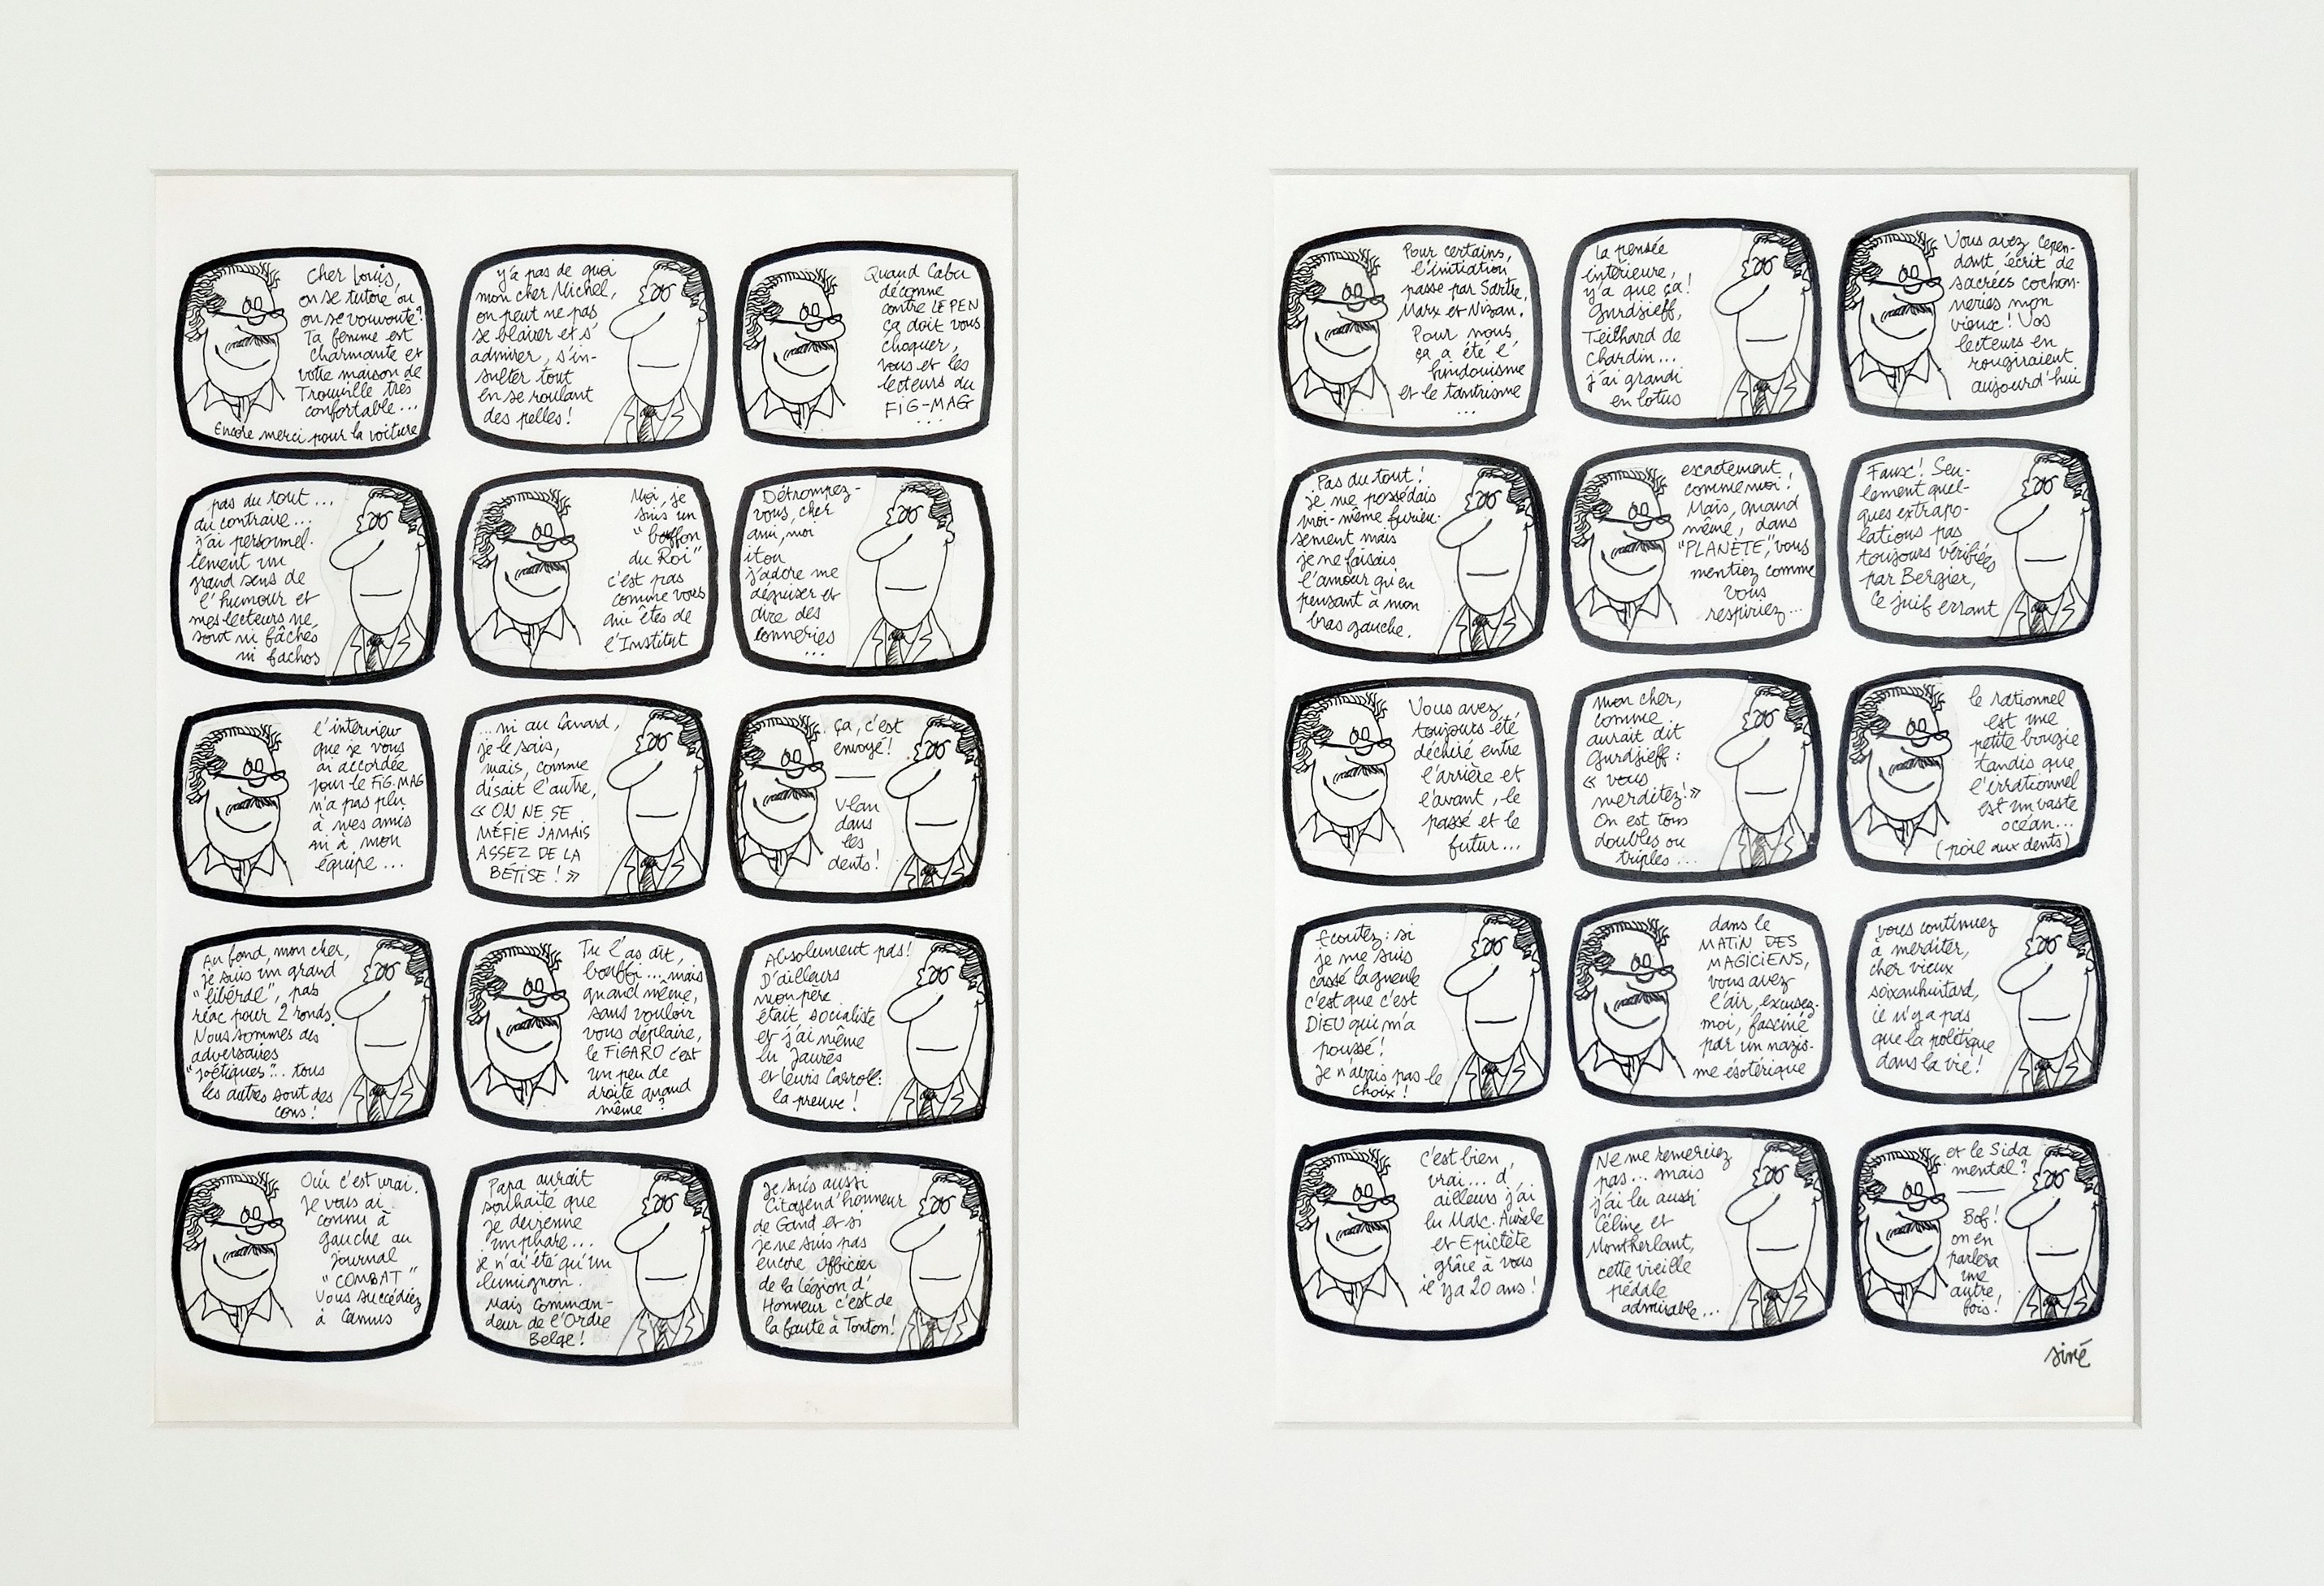 Cher Louis,
on se tutoie ou
on se vouvoute?
Ta femme est
charmante et
votre maison de
Trouville très
confortable...
Encore merci pour la voiture
y'a pas de quoi
mon cher Michel,
on peut ne pas
se blairer et s'
admirer, s'in-
sulter tout
en se roulant
des pelles!
Quand Cabu
déconne
contre LE PEN
ça doit vous
choquer,
vous et les
lecteurs du
FIG-MAG
...
pas du tout...
du contraire...
j'ai personnel-
lement un
grand sens de
l'humour et
mes lecteurs ne
sont ni fâchés
ni fachos
Moi, je
suis un
"bouffon
du Roi"
c'est pas
comme vous
qui êtes de
l'Institut
Détrompez-
vous, cher
ami, moi
itou
j'adore me
déguiser et
dire des
conneries
...
l'interview
que je vous
ai accordée
pour le FIG.MAG
n'a pas plu
à mes amis
ni à mon
équipe...
...ni au Canard,
je le sais,
mais, comme
disait l'autre,
« ON NE SE
MÉFIE JAMAIS
ASSEZ DE LA
BÊTISE! »
ça, c'est
envoyé!
—
Vlan
dans
les
dents!
Au fond, mon cher,
je suis un grand
"libéral", pas
réac pour 2 ronds.
Nous sommes des
adversaires
"poétiques"... tous
les autres sont des
cons!
Tu l'as dit,
bouffi... mais
quand même,
sans vouloir
vous déplaire,
le FIGARO c'est
un peu de
droite quand
même?
Absolument pas!
D'ailleurs
mon père
était socialiste
et j'ai même
lu Jaurès
et Lewis Carroll:
la preuve!
Oui c'est vrai.
Je vous ai
connu à
gauche au
journal
"COMBAT"
Vous succédiez
à Camus
Papa aurait
souhaité que
je devienne
un phare...
je n'ai été qu'un
lumignon.
Mais comman-
deur de l'Ordre
Belge!
Je suis aussi
Citoyen d'honneur
de Gand et si
je ne suis pas
encore Officier
de la légion d'
Honneur c'est de
la faute à Tonton!
Pour certains,
l'initiation
passe par Sartre,
Marx et Nizan.
Pour nous
ça a été l'
hindouisme
et le tantrisme
...
la pensée
intérieure,
y'a que ça!
Gurdjieff,
Teilhard de
Chardin...
j'ai grandi
en lotus
Vous avez cepen-
dant écrit de
sacrées cochon-
neries mon
vieux! Vos
lecteurs en
rougiraient
aujourd'hui
Pas du tout!
je me possédais
moi-même furieu-
sement mais
je ne faisais
l'amour qu'en
pensant à mon
bras gauche.
exactement
comme moi!
Mais, quand
même, dans
"PLANÈTE", vous
mentiez comme
vous
respiriez...
Faux! Seu-
lement quel-
ques extrapo-
lations pas
toujours vérifiées
par Bergier,
ce juif errant
Vous avez
toujours été
déchiré entre
l'arrière et
l'avant, le
passé et le
futur...
mon cher,
comme
aurait dit
Gurdjieff:
« vous
merditez! »
On est tous
doubles ou
triples...
le rationnel
est une
petite bougie
tandis que
l'irrationnel
est un vaste
océan...
(poil aux dents)
Ecoutez: si
je me suis
cassé la gueule
c'est que c'est
DIEU qui m'a
poussé!
Je n'avais pas le
choix!
dans le
MATIN DES
MAGICIENS,
vous avez
l'air, excusez-
moi, fasciné
par un nazis-
me ésotérique
vous continuez
à merditer,
cher vieux
soixanhuitard,
il n'y a pas
que la politique
dans la vie!
C'est bien
vrai... d'
ailleurs j'ai
lu Marc. Aurèle
et Epictète
grâce à vous
il y a 20 ans!
Ne me remerciez
pas... mais
j'ai lu aussi
Céline et
Montherlant,
cette vieille
pédale
admirable...
et le Sida
mental?
—
Bof!
on en
parlera
une
autre
fois!
siné